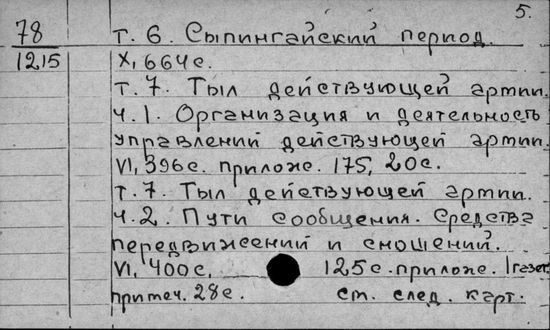 5.
78 т. 6. Сыпингайский период.
1215 X, 664 с.
т. 7. Тыл действующей армии.
ч. 1. Организация и деятельность
управлений действующей армии.
VI, 396 с. прилож. 175, 20 с.
т. 7. Тыл действующей армии.
ч. 2. Пути сообщения. Средства
передвижений и сношений.
VI, 400 с. 125 с. прилож.
примеч. 28 с. см. след. карт.